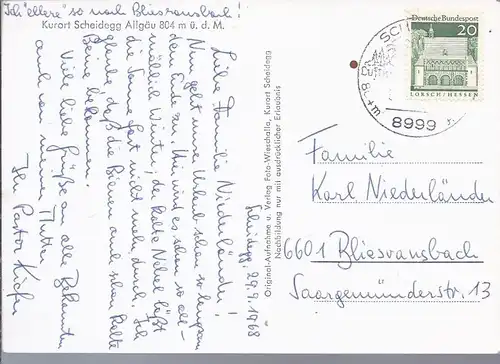 Ich "eltere" so nach Bliesransbach!
Kurort Scheidegg Allgäu 804 m ü. d. M.
Scheidegg, 29.9.1968
Liebe Familie Niederländer!
Nun geht unser Urlaub schon so langsam
dem Ende zu. Hier wird es schon so all-
mählich Winter; der kalte Nebel läßt
die Sonne fast nicht mehr durch. Ich
glaube, daß die Bienen auch schon kalte
Beine bekommen.
Viele liebe Grüße an alle Bekannten
auch von meiner Mutter
Ihr Pastor Kiefer
Original-Aufnahme u. Verlag Foto-Wieschalla, Kurort Scheidegg
Nachbildung nur mit ausdrücklicher Erlaubnis
Deutsche Bundespost
20
LORSCH/HESSEN
8999
Familie
Karl Niederländer
6601 Bliesransbach
Saargemünderstr. 13